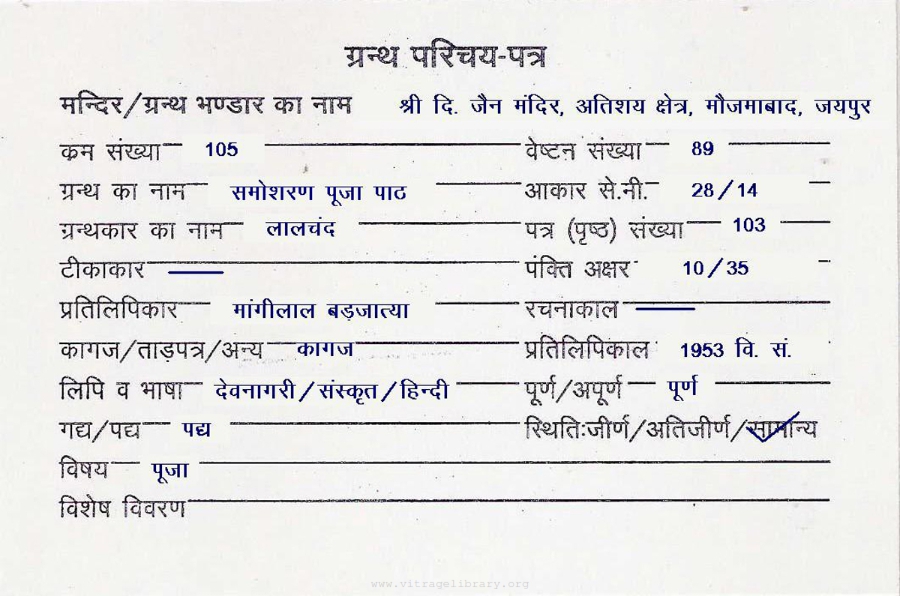 ग्रन्थ परिचय-पत्र
मन्दिर/ग्रन्थ भण्डार का नाम श्री दि. जैन मंदिर, अतिशय क्षेत्र, मौजमाबाद, जयपुर
कम संख्या 105 वेष्टन संख्या 89
ग्रन्थ का नाम समोशरण पूजा पाठ आकार से.नी. 28/14
ग्रन्थकार का नाम लालचंद पत्र (पृष्ठ) संख्या 103
टीकाकार पंक्ति अक्षर 10/35
प्रतिलिपिकार मांगीलाल बड़जात्या रचनाकाल
कागज/ताड़पत्र/अन्य कागज प्रतिलिपिकाल 1953 वि. सं.
लिपि व भाषा देवनागरी/संस्कृत/हिन्दी पूर्ण/अपूर्ण पूर्ण
गद्य/पद्य पद्य स्थितिःजीर्ण/अतिजीर्ण/सामान्य
विषय पूजा
विशेष विवरण
www.vitragelibrary.org